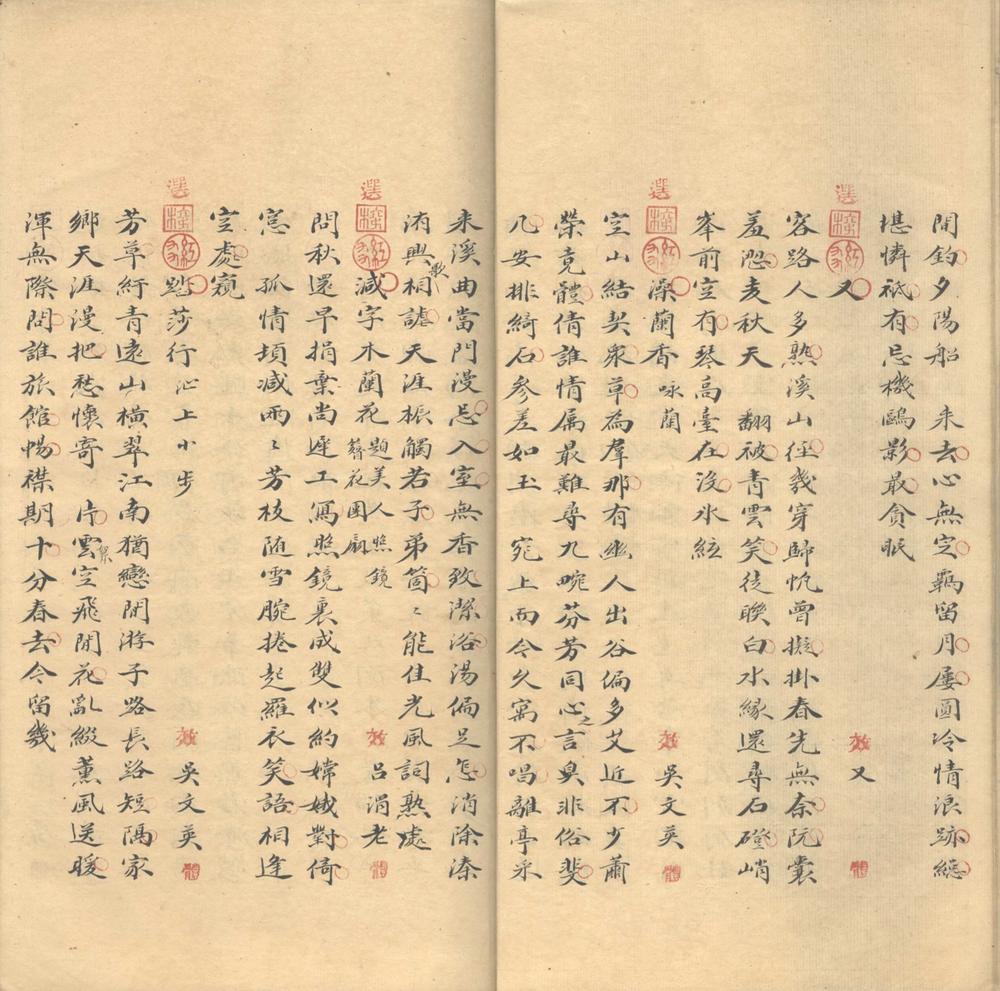 閒釣夕陽船　来去心無定羈留月屢圓冷情浪跡總
堪憐祇有忘機鷗影最貪眠
選
又　效又體
客路人多熟溪山徑幾穿歸帆曾擬掛春先無奈阮囊
羞澀麦秋天　翻被青雲笑徒聯白水緣還尋石磴峭
峯前空有琴高臺在沒水絃
選
深蘭香　咏蘭　效吳文英體
空山結契衆草為羣那有幽人出谷偏多艾近不少蕭
榮竟體倩誰情属最難尋九畹芬芳同心之言臭非俗斐
几安排綺石參差如玉宛上而今久寓不唱離亭采
来溪曲當門漫忘入室無香致潔浴湯偏足怎消除溱
洧興歌相謔天涯振觸若子弟箇〻能佳光風詞熟處
選
減字木蘭花　題美人照鏡簪花團扇　效呂渭老體
問秋還早捐棄尚遲工寫照鏡裏成雙似約嫦娥對倚
窓　孤情頃減兩〻芳枝随雪腕捲起羅衣笑語相逢
空處窺
選
踏莎行　江上小步　效吳文英體
芳草紆青遠山橫翠江南猶戀閒游子路長路短隔家
鄉天涯漫把愁懷寄　片雲絮空飛閒花亂綴薰風送暖
渾無際問誰旅館暢襟期十分春去今留幾